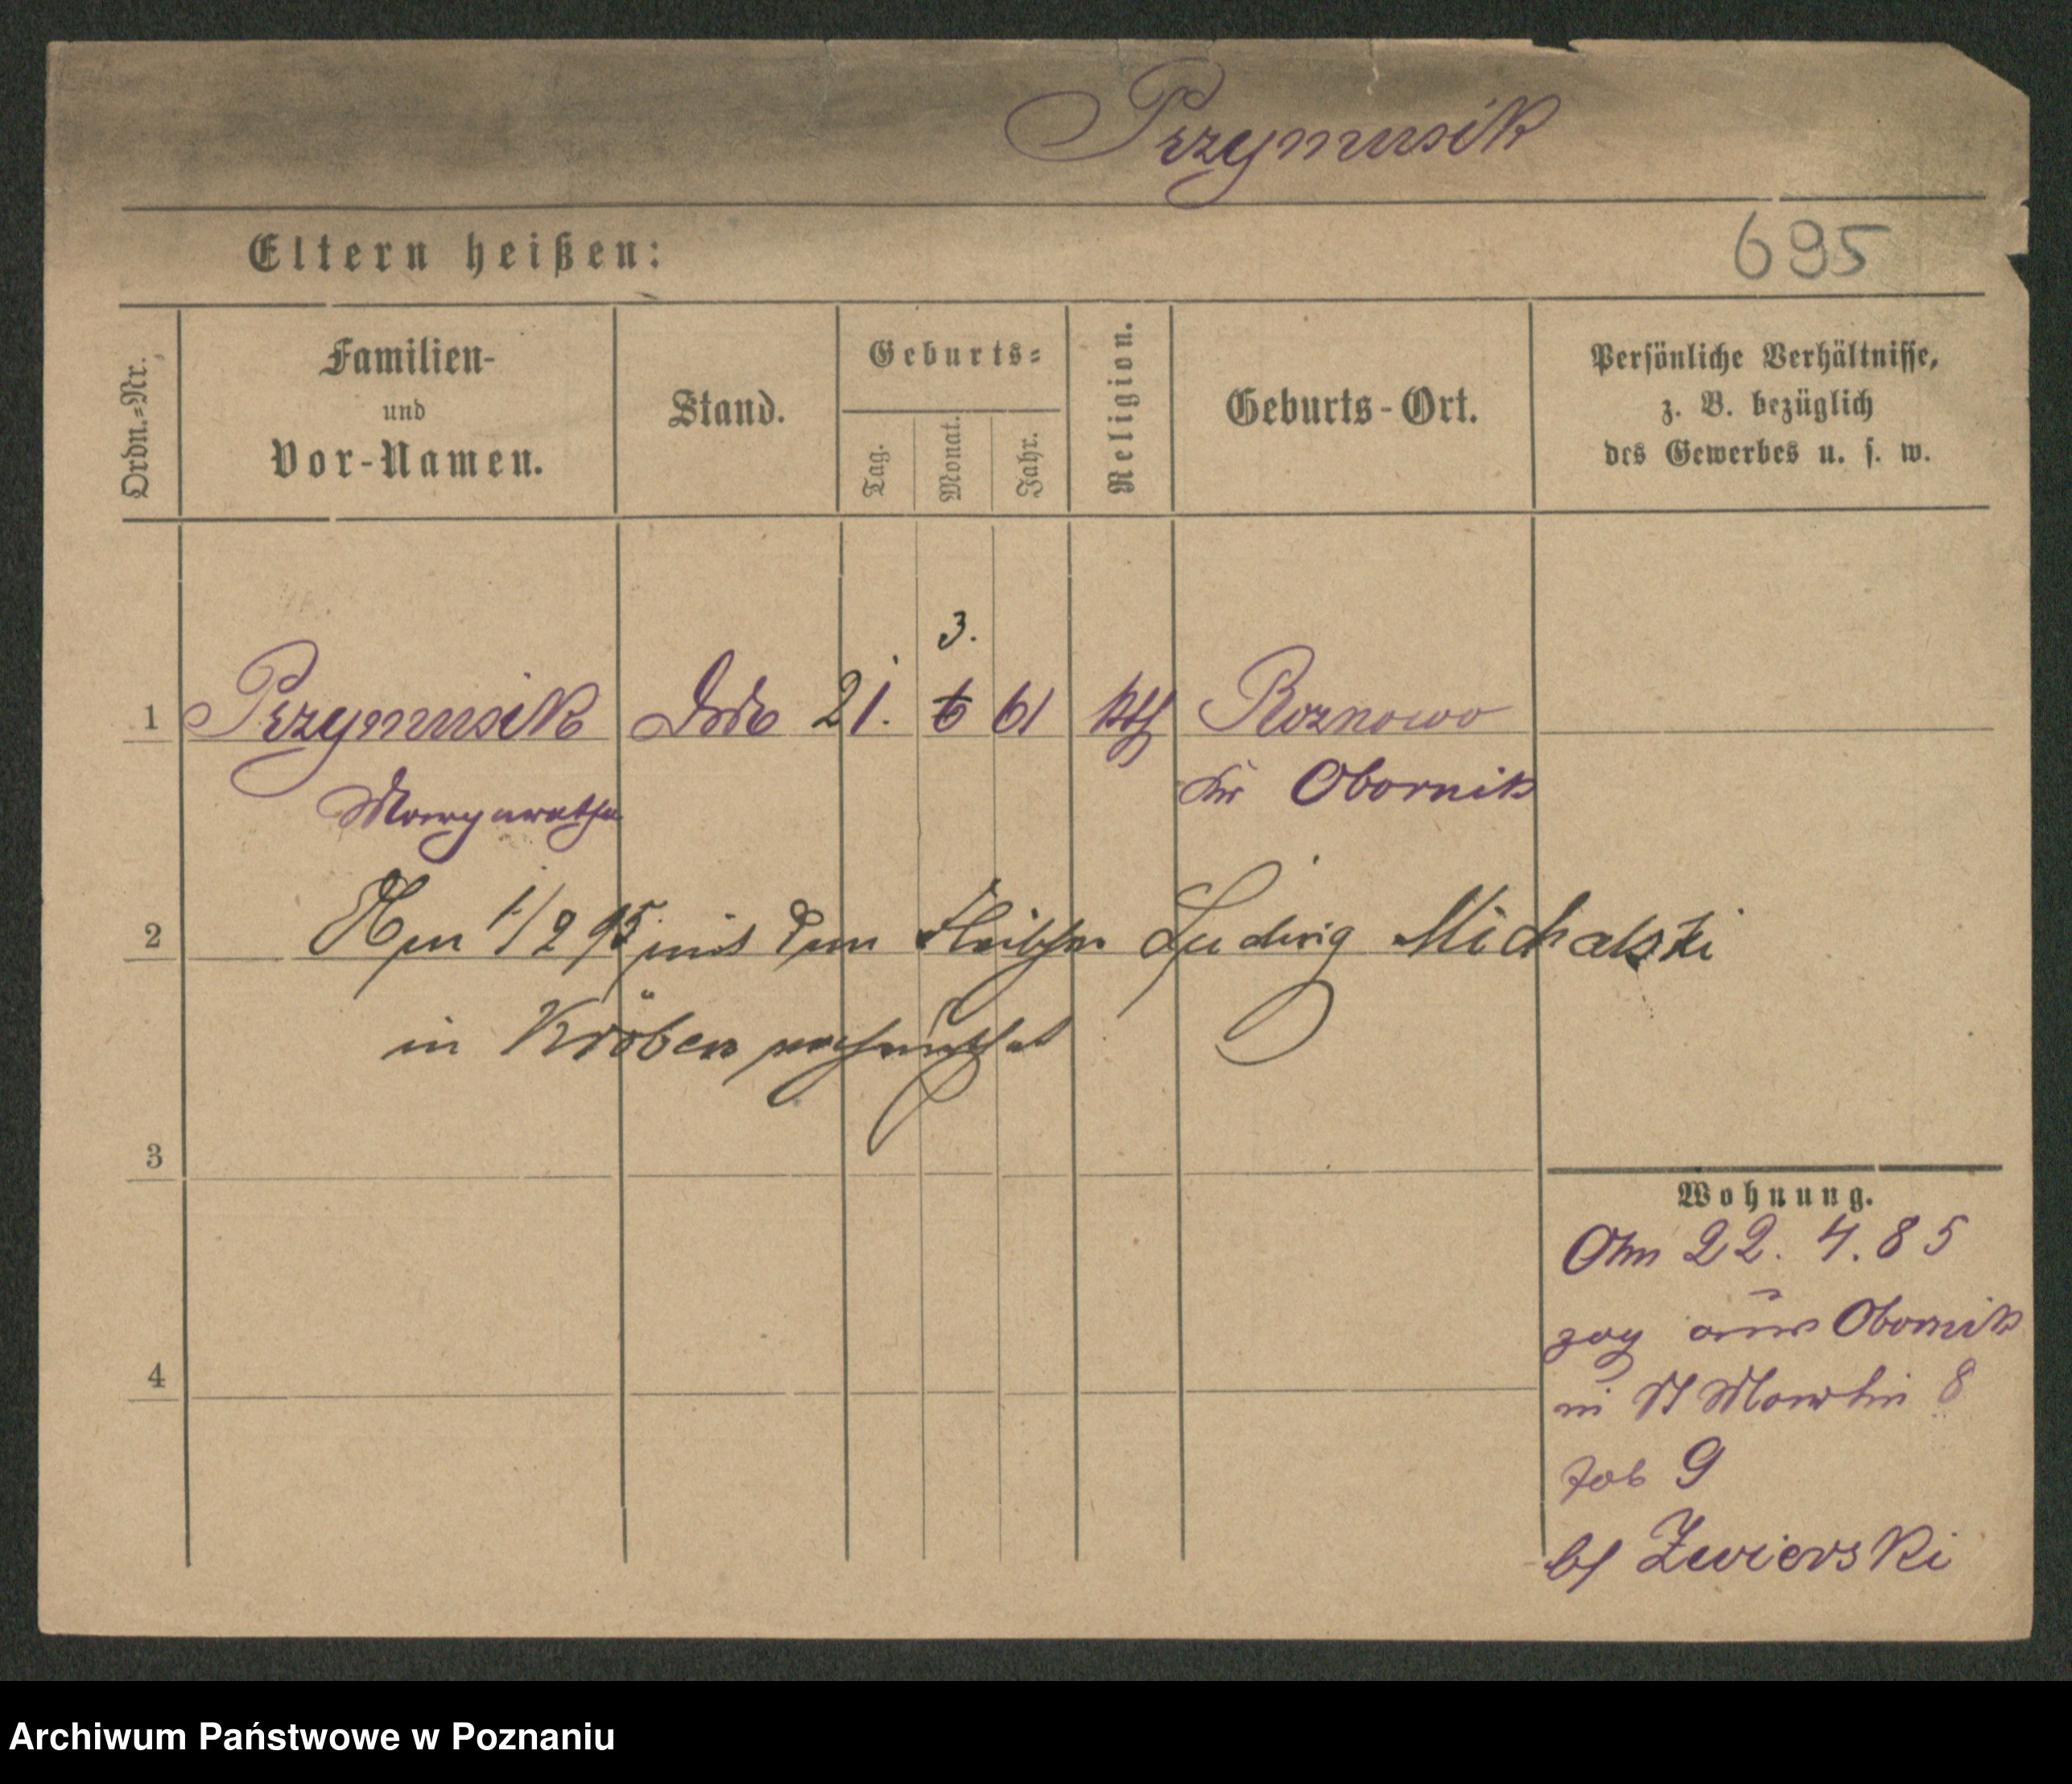 Przymusik
Eltern heißen:
695
Ordn.=Nr.
Familien-
und
Vor-Namen.
Stand.
Geburts=
Tag.
Monat.
Jahr.
Religion.
Geburts-Ort.
Persönliche Verhältnisse,
z. B. bezüglich
des Gewerbes u. s. w.
3.
1 Przymusik 21. 6 61 kth Roznowo
Margaretha Kr Obornik
2 Am 1/2 95 mit dem Fleischer Ludwig Michalski
in Kröben verheirathet
3
Wohnung.
Am 22. 4. 85
zog aus Obornik
4
in St Martin 8
Feb 9
bei Zwierski
Archiwum Państwowe w Poznaniu